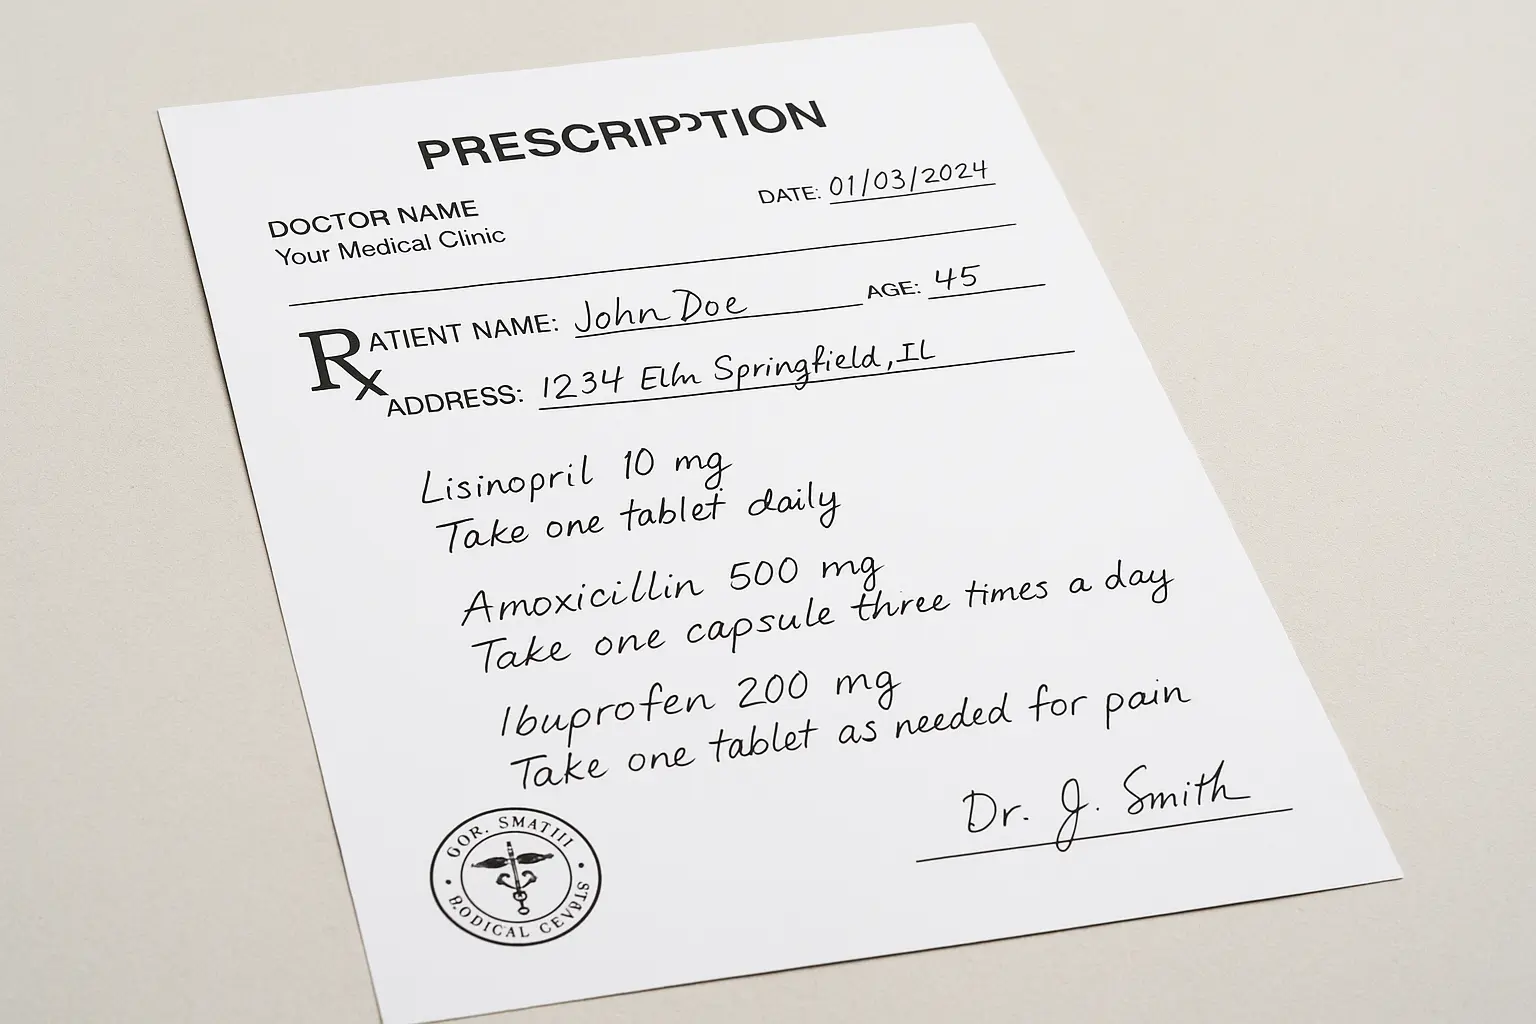 PRESCRIPTION
DOCTOR NAME
Your Medical Clinic
DATE: 01/03/2024
Rx
ATIENT NAME: John Doe AGE: 45
ADDRESS: 1234 Elm Springfield, IL
Lisinopril 10 mg
Take one tablet daily
Amoxicillin 500 mg
Take one capsule three times a day
Ibuprofen 200 mg
Take one tablet as needed for pain
Dr. J. Smith
GOR. SMATIII